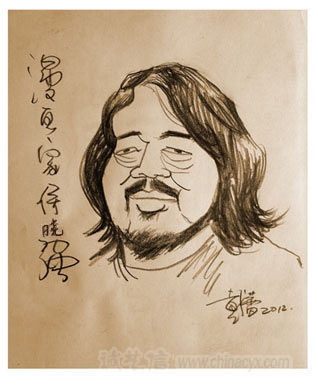 漫画家侯晓强
2012.
诚艺信 www.chinacyx.com